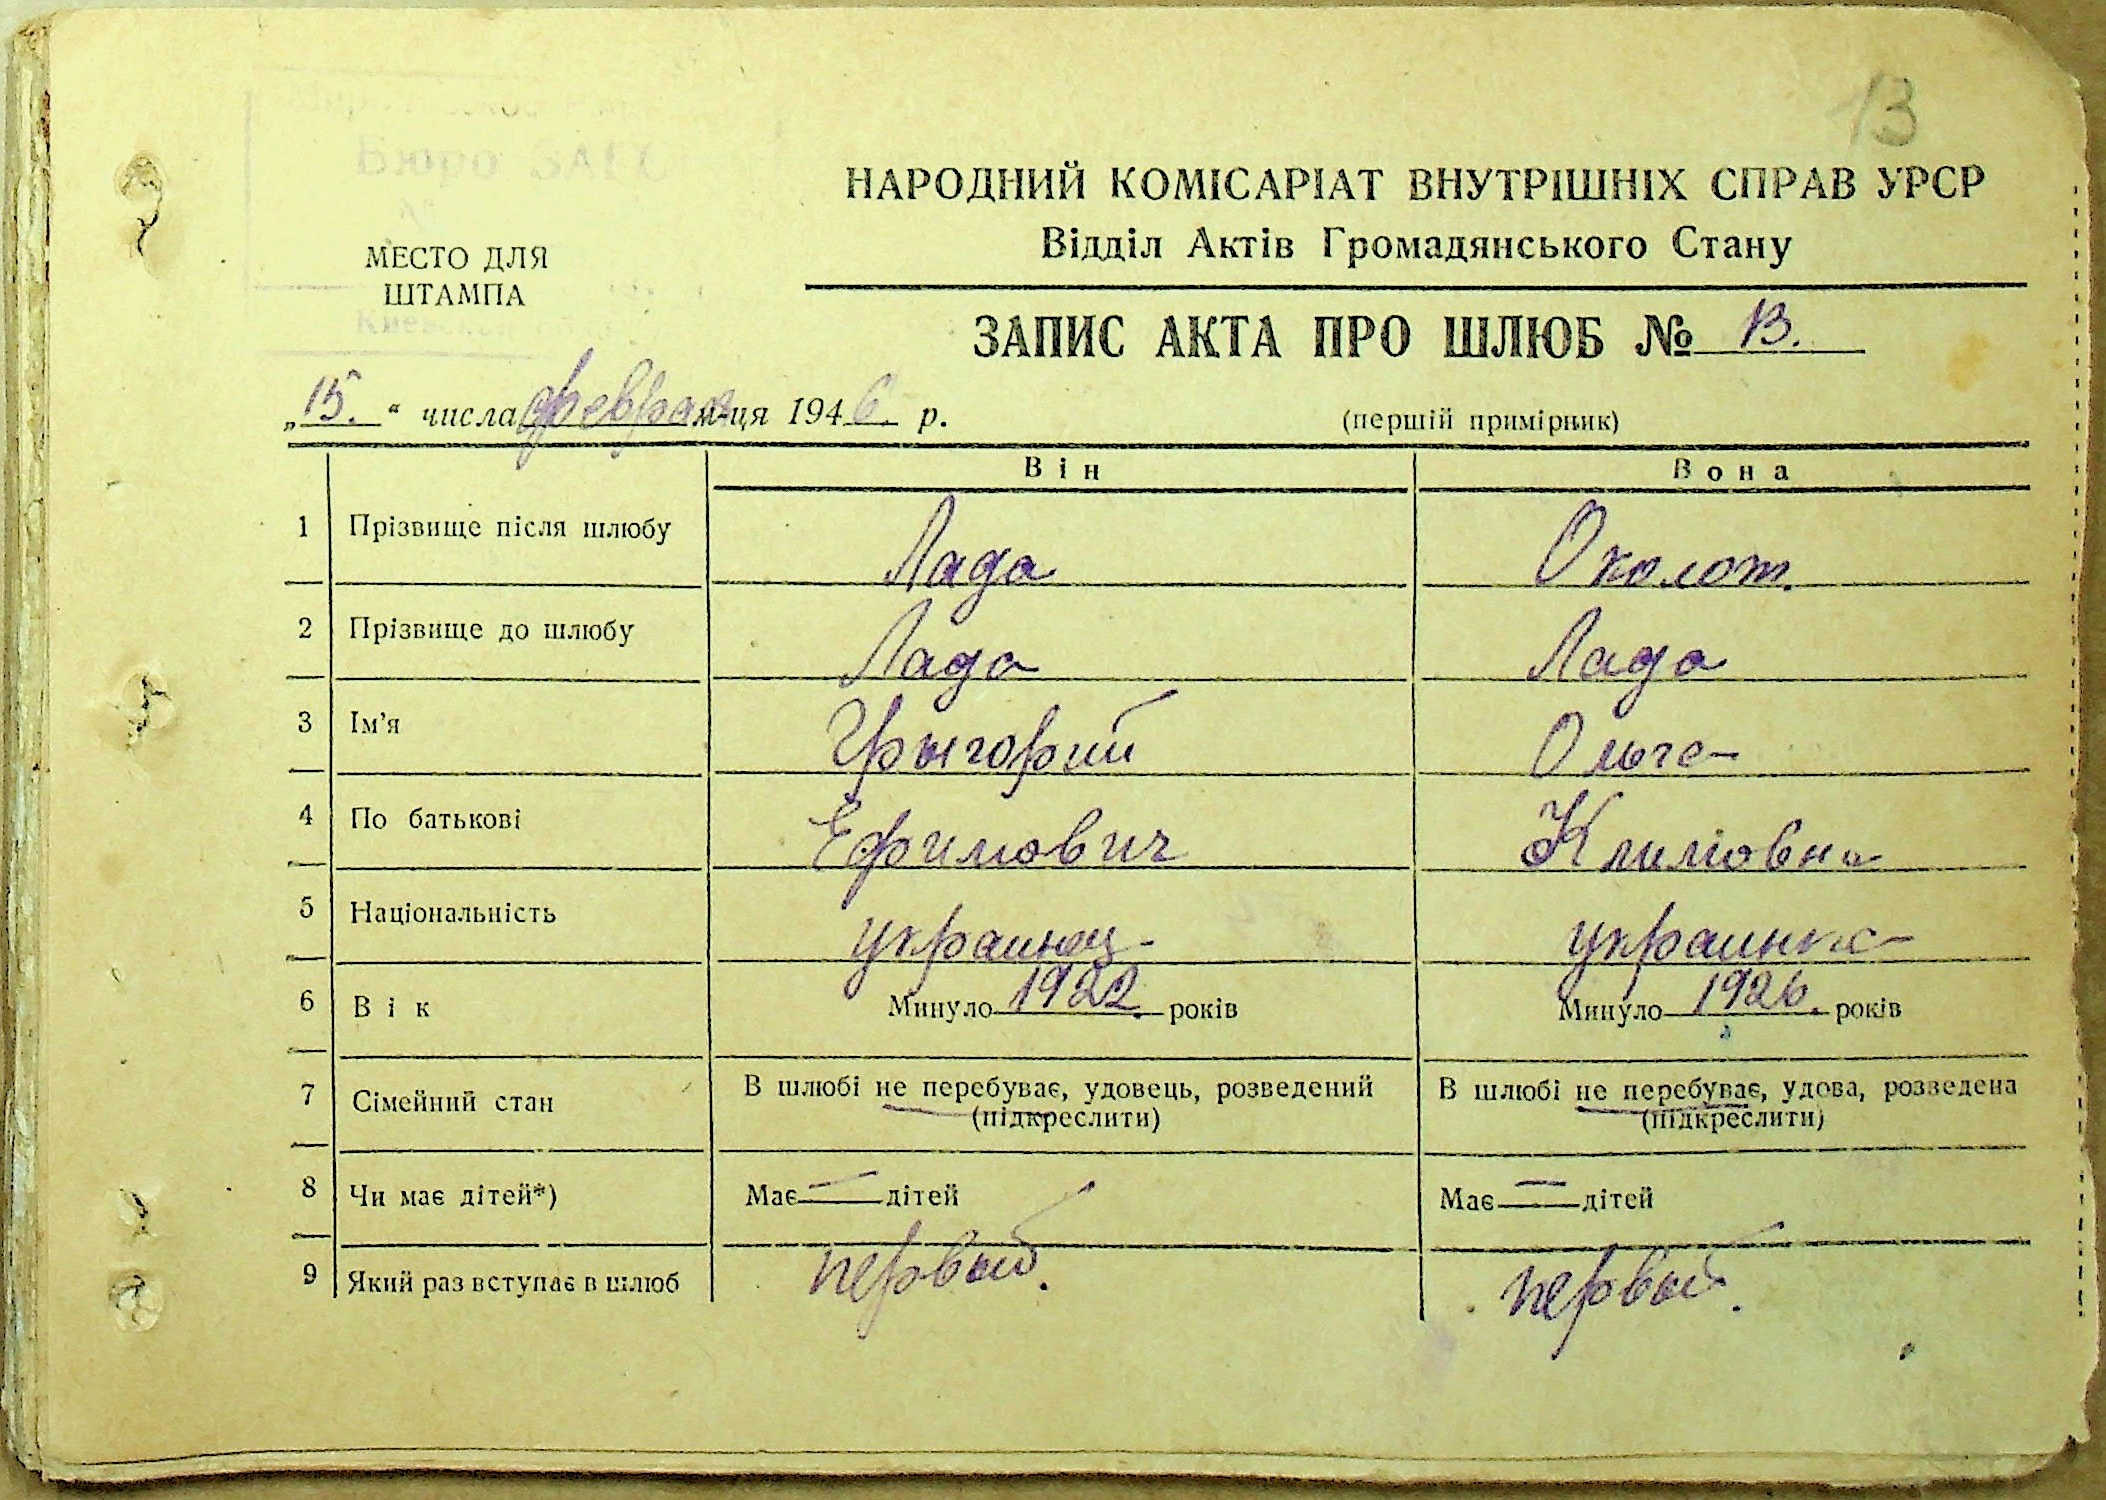 13
Бюро ЗАГС
НАРОДНИЙ КОМІСАРІАТ ВНУТРІШНІХ СПРАВ УРСР
Відділ Актів Громадянського Стану
МЕСТО ДЛЯ
ШТАМПА
ЗАПИС АКТА ПРО ШЛЮБ № 13.
„15.“ числа февраля м-ця 1946. р.
(першій примірник)
Він Вона
1 Прізвище після шлюбу Лада Околот.
2 Прізвище до шлюбу Лада Лада
3 Ім'я Грыгорий Ольга
4 По батькові Ефимович Климовна
5 Національність украинец украинка
6 Вік Минуло 1922. років Минуло 1926. років
7 Сімейний стан В шлюбі не перебуває, удовець, розведений В шлюбі не перебуває, удова, розведена
(підкреслити) (підкреслити)
8 Чи має дітей*) Має — дітей Має — дітей
9 Який раз вступає в шлюб первый. первый.